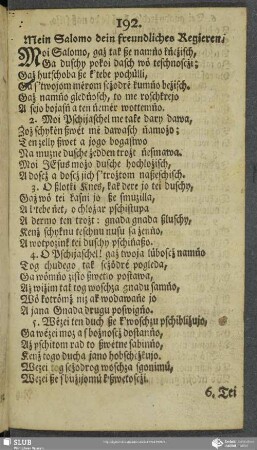 192.
Mein Salomo dein freundliches Regieren/
Moi Salomo, gaž tak ße namño kńežisch,
Ga duschy pokoi dasch wò teschnosczi;
Gaž hutschoba ße k'tebe pochúlli,
Ga s'twojom mèrom sczodrè kumño bežisch.
Gaž namño gledńosch, to me roschkrejo
A ßejo bojasń a ten nemèr wottemño.
2. Moi Pschijaschel me take dary dawa,
Zož schykèn swèt mè dawasch ńamožo;
Ten zelly swèt a jogo bogastwo
Na muzne dusche žedden trozt ńesmawa.
Moi JEsus možo dusche hochložisch,
A dosež a dosež jich s'troztom naßeschisch.
3. O slotki Knes, kak dere jo tei duschy,
Gaž wò tei kasni jo ße smuzilla,
A k'tebe ńet, o chložar pschistupa
A dermo ten trozt: gnada gnada slluschy,
Kenž schyknu teschnu nusu sa ženño,
A wotpozink tei duschy pschińaßo.
4. O Pschijaschel! gaž twoja lubosež namño
Tog chudego tak sczòdrè pogleda,
Ga wòmño zisto swetlo postawa,
Až wižim tak tog woschza gnadu samño,
Wò kotròmž niž ak wodawańe jo
A jana Gnada drugu poswigńo.
5. Wèzei ten duch ße k'woschzu pschibližujo,
Ga wèzei moz a s'božnosež dostanño,
Až pschitom rad to swetne sabinño,
Kenž togo ducha jano hobschežkujo.
Wezei tog sczodrog woschza sgonimú,
Wezei ße s'bužijomú kswetosczi.
6. Tei